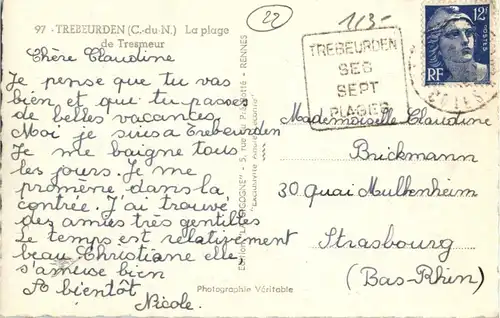 97 - TREBEURDEN (C.-du-N.) La plage
de Tresmeur
22
113-
Chère Claudine
Je pense que tu vas
bien et que tu passes
de belles vacances.
Moi je suis a Trebeurden
Je me baigne tous
les jours. Je me
promène dans la
contrée. J'ai trouvé
des amies très gentilles
Le temps est relativement
beau. Christiane elle,
s'amuse bien
A bientôt
Nicole.
TREBEURDEN
SES
SEPT
PLAGES
12F
POSTES
RF
Mademoiselle Claudine
Brickmann
30 Quai Mullenheim
Strasbourg
(Bas-Rhin)
Photographie Véritable